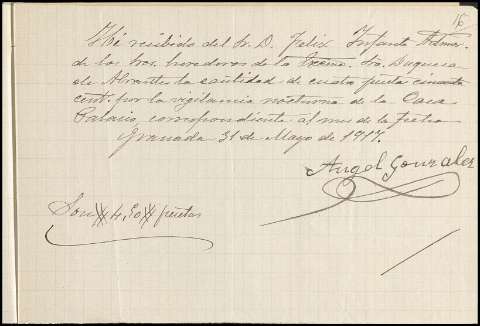 16
He recibido del Sr. D. Felix Infante Admor.
de los Sres. herederos de la Excma. Sra. Duquesa
de Abrantes la cantidad de cuatro pesetas cincuenta
cent. por la vigilancia nocturna de la Casa
Palacio, correspondiente al mes de la fecha
Granada 31 de Mayo de 1917.
Angel Gonzalez
Son # 4,50 # pesetas